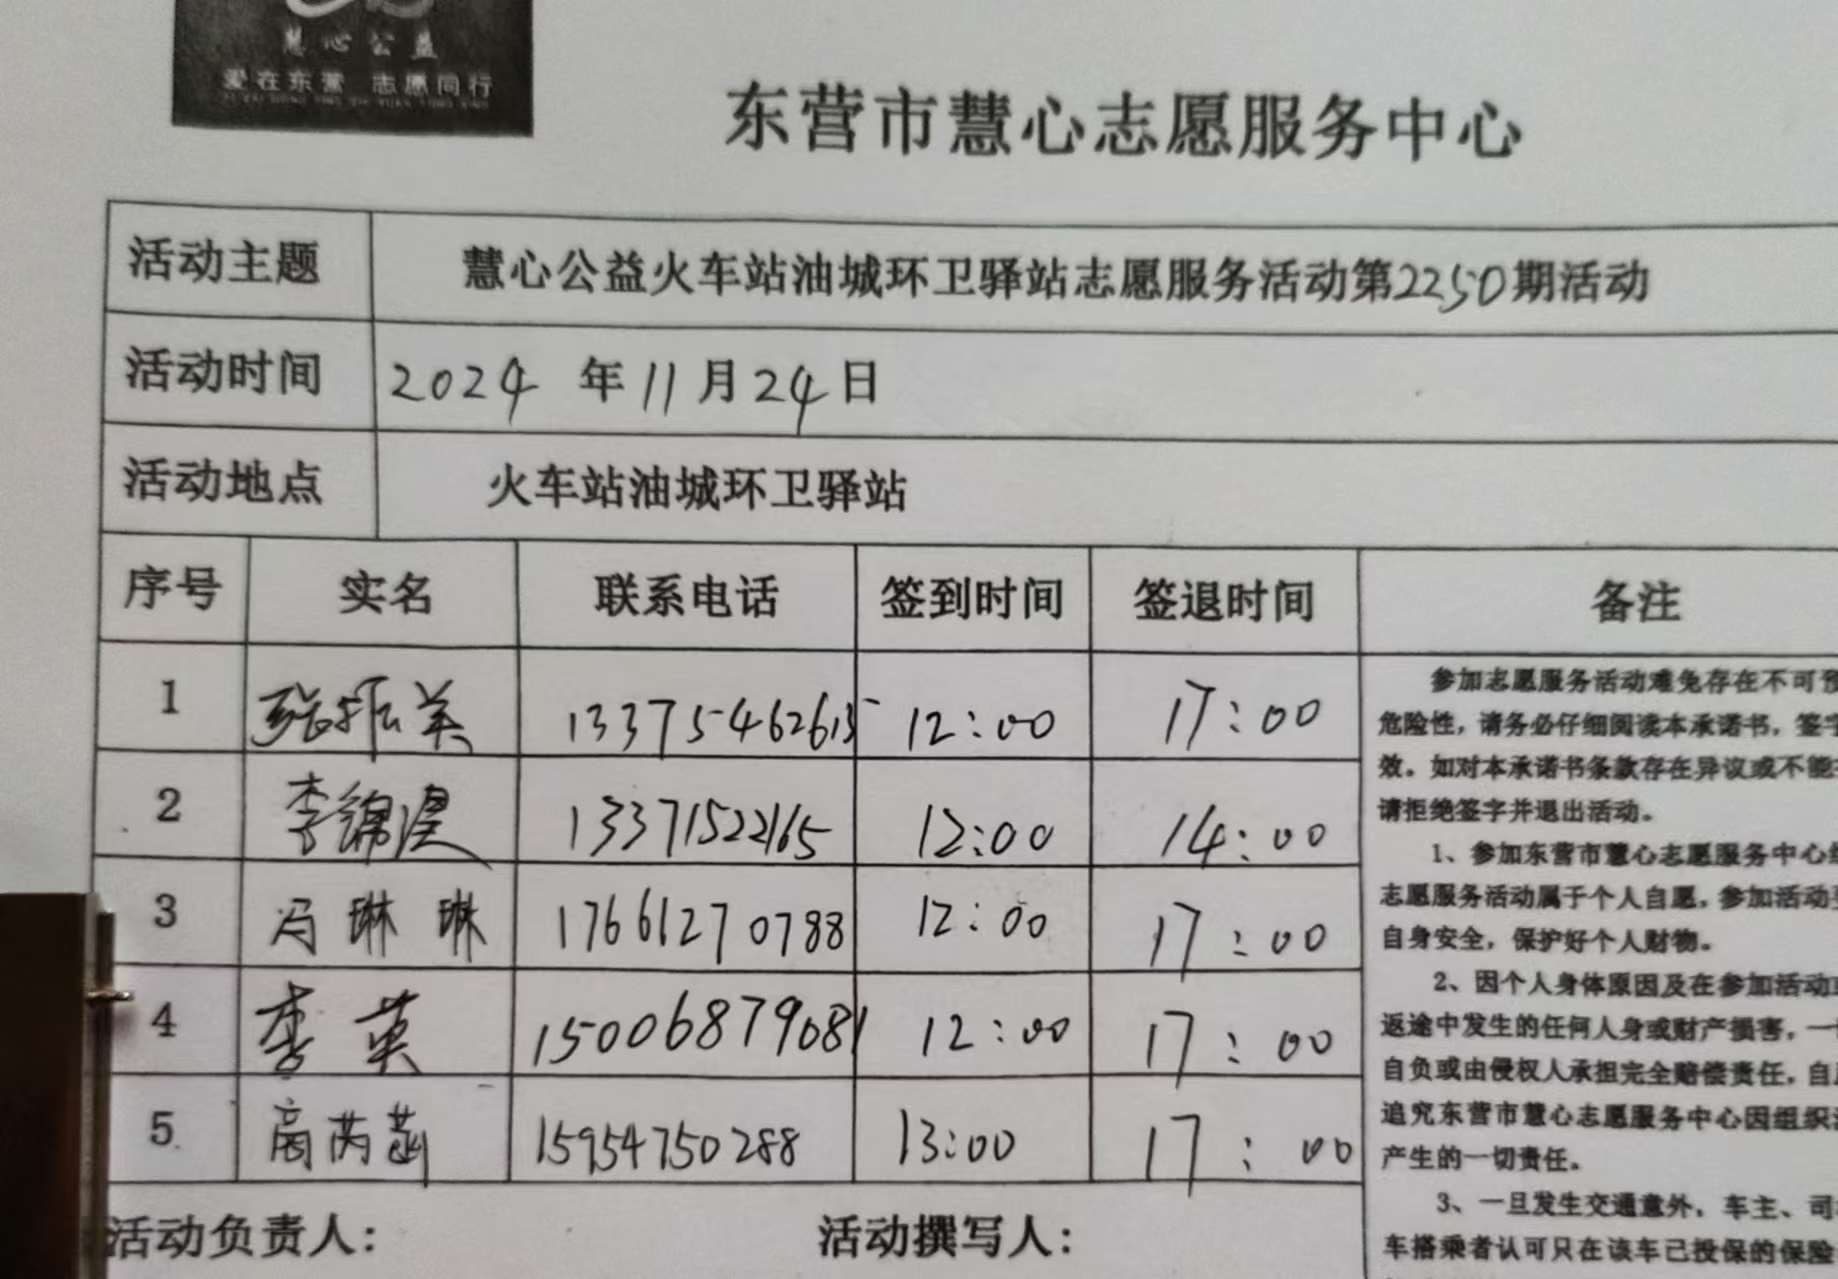 慧心公益
爱在东营 志愿同行
东营市慧心志愿服务中心
活动主题 慧心公益火车站油城环卫驿站志愿服务活动第2250期活动
活动时间 2024 年 11 月 24 日
活动地点 火车站油城环卫驿站
序号 实名 联系电话 签到时间 签退时间 备注
1 张振美 13375462615 12:00 17:00
2 李锦 13371522165 12:00 14:00
3 冯琳琳 17661270788 12:00 17:00
4 李英 15006879681 12:00 17:00
5 高芮菡 15954750288 13:00 17:00
参加志愿服务活动难免存在不可预
危险性，请务必仔细阅读本承诺书，签字
效。如对本承诺书条款存在异议或不能
请拒绝签字并退出活动。
1、参加东营市慧心志愿服务中心组
志愿服务活动属于个人自愿，参加活动
自身安全，保护好个人财物。
2、因个人身体原因及在参加活动或
返途中发生的任何人身或财产损害，一
自负或由侵权人承担完全赔偿责任，自
追究东营市慧心志愿服务中心因组织
产生的一切责任。
3、一旦发生交通意外，车主、司
车搭乘者认可只在该车已投保的保险
活动负责人： 活动撰写人：